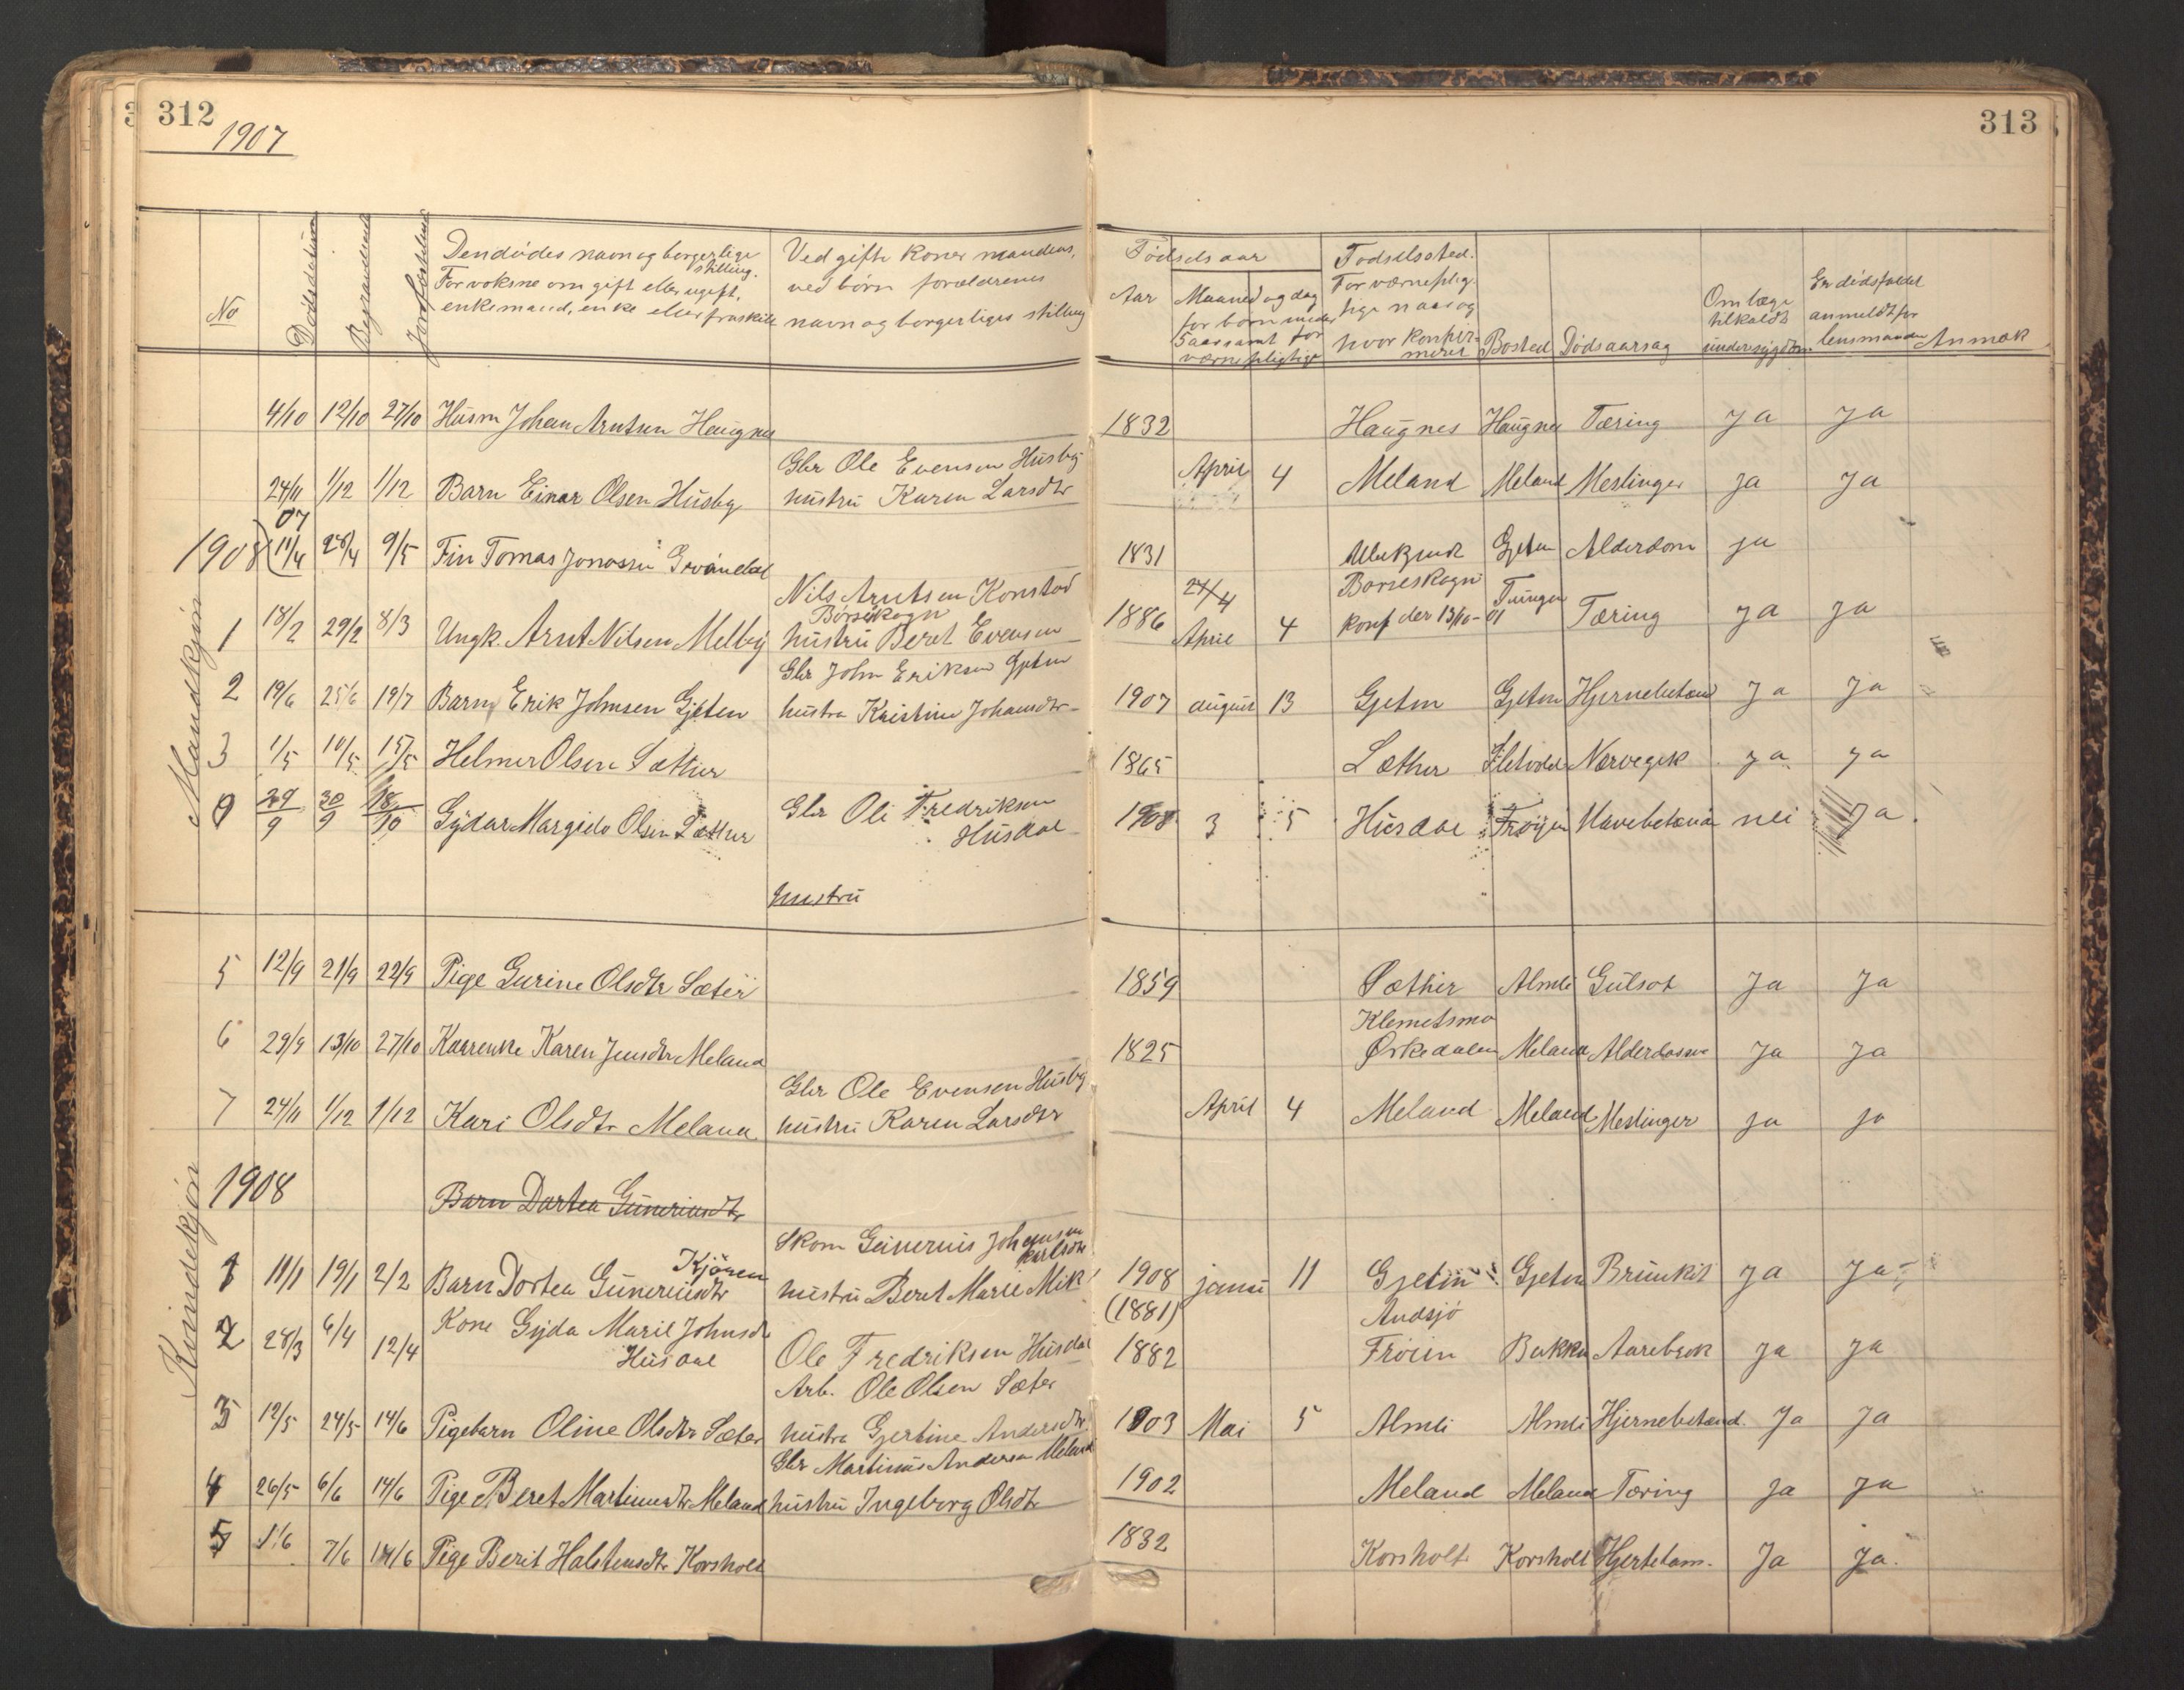 312
1907
313
No
Dødsdatum
Begravelsesd
Jordfæstelsesd
Den dødes navn og borgerlige stilling.
For voksne om gift eller ugift,
enkemand, enke eller fraskilt
Ved gifte koner mandens,
ved børn forældrenes
navn og borgerliges stilling
Fødselsaar
Aar
Maaned og dag
for børn under
5 aar samt for
værnepligtige
Fødselssted.
For værneplig
tige naar og
hvor konfir-
meret
Bosted
Dødsaarsag
Om læge
tilkaldt
under sygdom.
Er dødsfaldet
anmeldt for
lensmanden
Anmærk
Mandkjøn
4/10 12/10 27/10 Husm Johan Arntsen Haugnes 1832 Haugnes Haugnes Tæring Ja Ja
Gbr Ole Evensen Husby
24/11 1/12 1/12 Barn Einar Olsen Husby hustru Karen Larsdtr April 4 Meland Meland Meslinger Ja Ja
07
1908 11/4 28/4 9/5 Fin Tomas Jonassen Grøndal 1831 Ubekjendt Gjeten Alderdom ja
Nils Arntsen Konstad 27/4 Børseskogn
Børseskogn
1 18/2 29/2 8/3 Ungk. Arnt Nilsen Melby hustru Beret Evensen 1886 April 4 konf der 13/10-01 Tungen Tæring Ja Ja
Gbr John Eriksen Gjeten
2 19/6 25/6 19/7 Barn Erik Johnsen Gjeten hustru Kristine Johansdtr 1907 august 13 Gjeten Gjeten Hjernebetænd Ja Ja
3 1/5 10/5 15/5 Helmer Olsen Sæther 1865 Sæther Nervegik ja ja
29/9 30/9 18/10 Sydar Margido Olsen Sæther Gbr Ole Fredriksen
Husdal 1908 3 5 Husdal Frøijen Mavebetænd nei Ja
hustru
Kvindekjøn
5 12/9 21/9 22/9 Pige Gurine Olsdtr Sæter 1859 Sæther Almli Gulsot Ja Ja
Klemetsmo
6 29/9 13/10 27/10 Kaarenke Karen Jensdtr Meland 1825 Ørkedalen Meland Alderdomsv Ja Ja
Gbr Ole Evensen Husby
7 24/11 1/12 1/12 Kari Olsdtr Meland hustru Karen Larsdtr April 4 Meland Meland Meslinger ja ja
1908 Barn Dortea Guneriusdtr
Skom Gunerius Johansen
Karlsdtr
Kjøren
1 11/1 19/1 2/2 Barn Dortea Guneriusdtr hustru Beret Marie Mik 1908 janu 11 Gjeten Gjeten Brunkit Ja Ja
(1881) Andsjø
2 28/3 6/4 12/4 Kone Gyda Marie Johnsdt
Husdal Ole Fredriksen Husdal 1882 Frøien Bukku Aarebrok Ja Ja
Arb. Ole Olsen Sæter
3 12/5 24/5 14/6 Pigebarn Oline Olsdtr Sæter hustru Gjertine Andersdtr 1903 Mai 5 Almli Almli Hjernebetænd. Ja Ja
Gbr Martinus Andersen Meland
4 26/5 6/6 14/6 Pige Beret Martinusdtr Meland hustru Ingeborg Olsdtr 1902 Meland Meland Tæring Ja Ja
5 1/6 7/6 14/6 Pige Berit Halstensdtr Korsholt 1832 Korsholt Korsholt Hjertelam. Ja Ja.